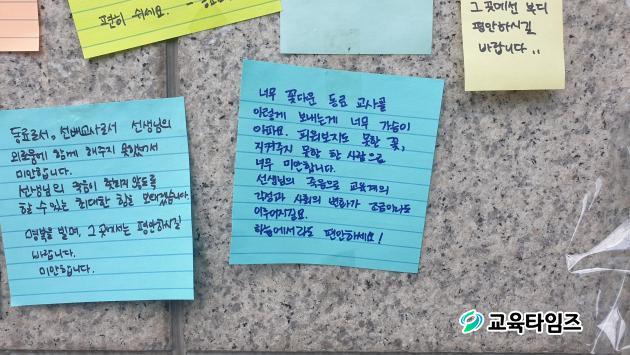 편히 쉬세요.
그곳에선 부디
편안하시길
바랍니다..
동료로서, 선배교사로서 선생님의
외로움에 함께 해주지 못했어서
미안합니다.
선생님의 죽음이 헛되지 않도록
할 수 있는 최대한 힘을 보태겠습니다.
명복을 빌며, 그 곳에서는 편안하시길
바랍니다.
미안합니다.
너무 꽃다운 동료 교사를
이렇게 보내는게 너무 가슴이
아파요. 피워보지도 못한 꽃,
지켜주지 못한 한 사람으로
너무 미안합니다.
선생님의 죽음으로 교육계의
각성과 사회의 변화가 조금이라도
이루어지길요.
하늘에서라도 편안하세요!
교육타임즈